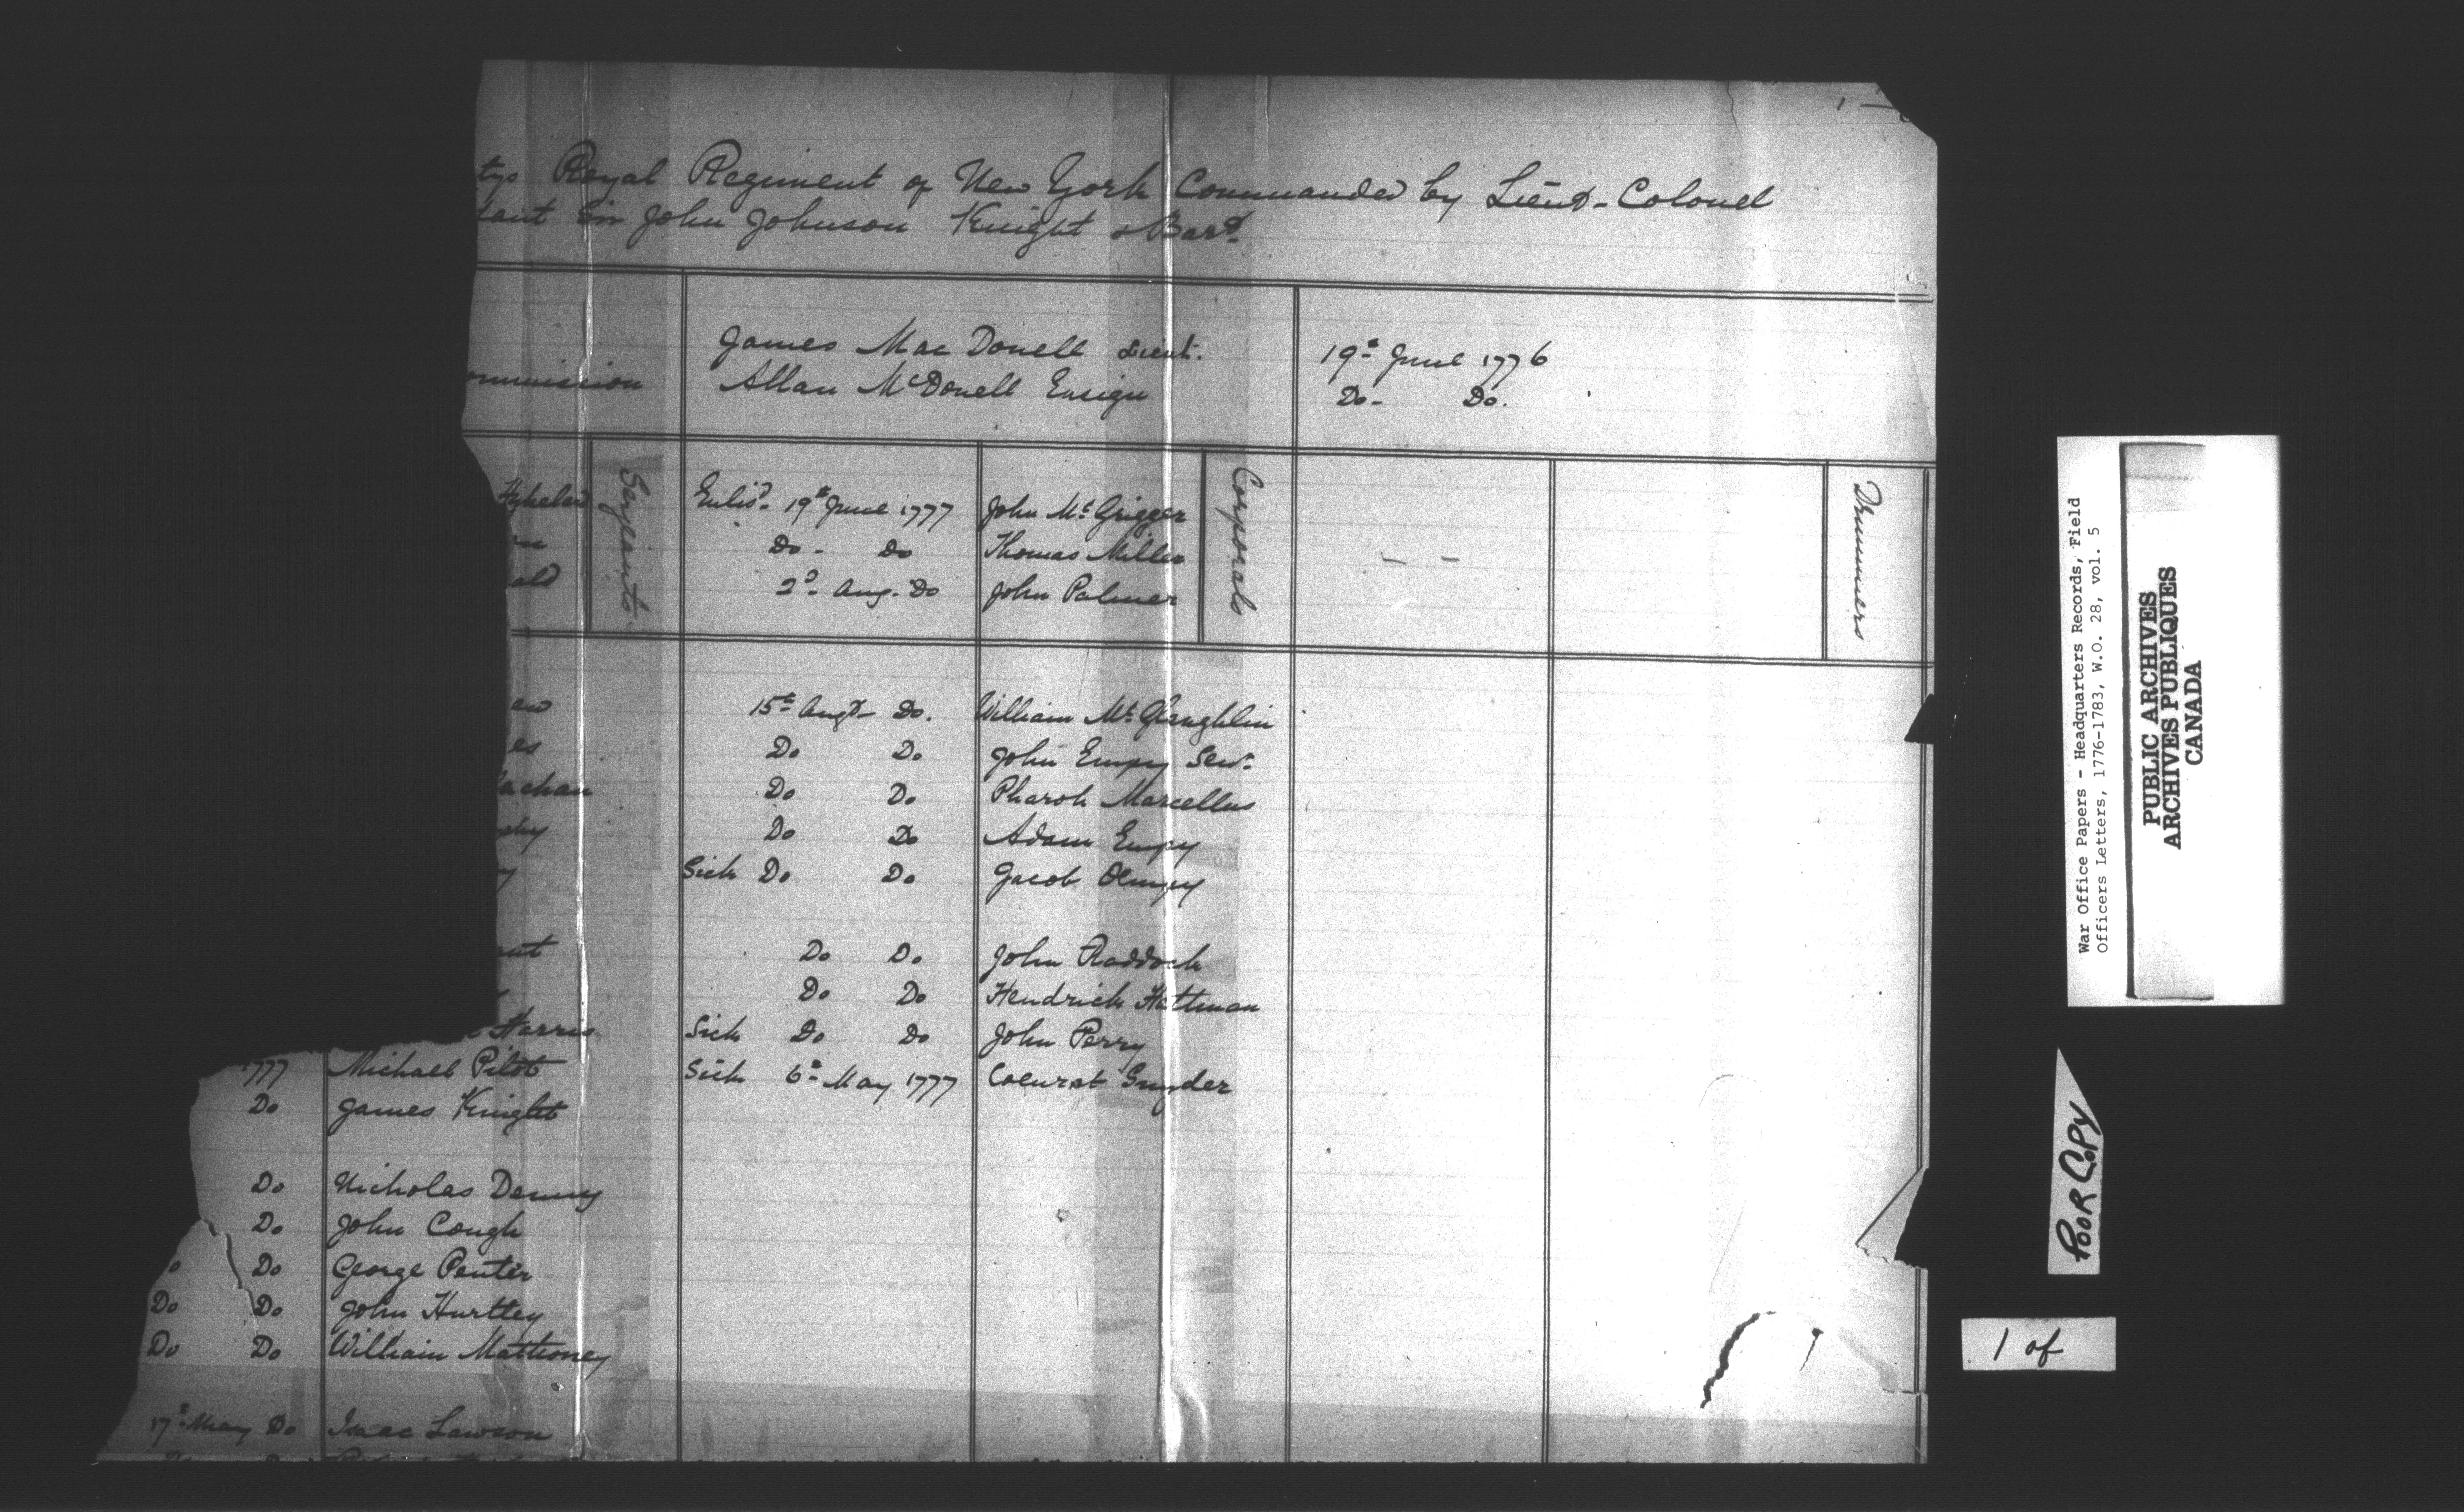 tys Royal Regiment of New York Commanded by Lieut-Colonel
dant Sir John Johnson Knight & Bart.
James Mac Donell Lieut. 19th June 1776
ommission Allan McDonell Ensign Do- Do.
Serjeants Corporals Drummers
Enlisd. 19th June 1777 John Mc Grigger
Do- Do Thomas Miller
ald 2d. Aug. Do John Palmer
15th Augt- Do. William Mc Glaughlin
es Do Do John Empy Senr.
achan Do Do Pharoh Marcellus
Do Do Adam Empy
y Sick Do Do Jacob
Do Do John Raddock
Do Do Hendrick Hattman
Harris Sick Do Do John Perry
1777 Michael Pilot Sick 6th May 1777 Snyder
Do James Knight
Do Nicholas Denny
Do John Cough
o Do George Penter
Do Do John Hurtley
Do Do William Mathoney
17th May Do Isaac Lawson
War Office Papers - Headquarters Records, Field
Officers Letters, 1776-1783, W.O. 28, vol. 5
PUBLIC ARCHIVES
ARCHIVES PUBLIQUES
CANADA
POOR COPY
1 of